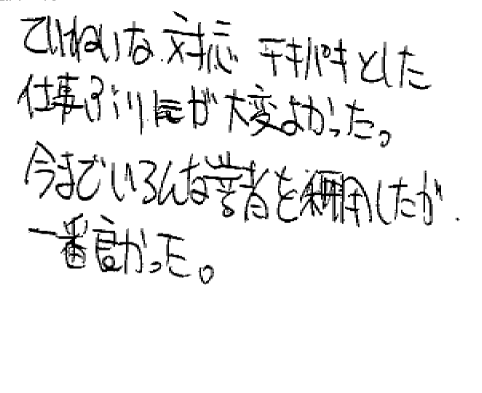 ていねいな対応 テキパキとした
仕事ぶりが大変よかった。
今までいろんな業者を利用したが、
一番良かった。